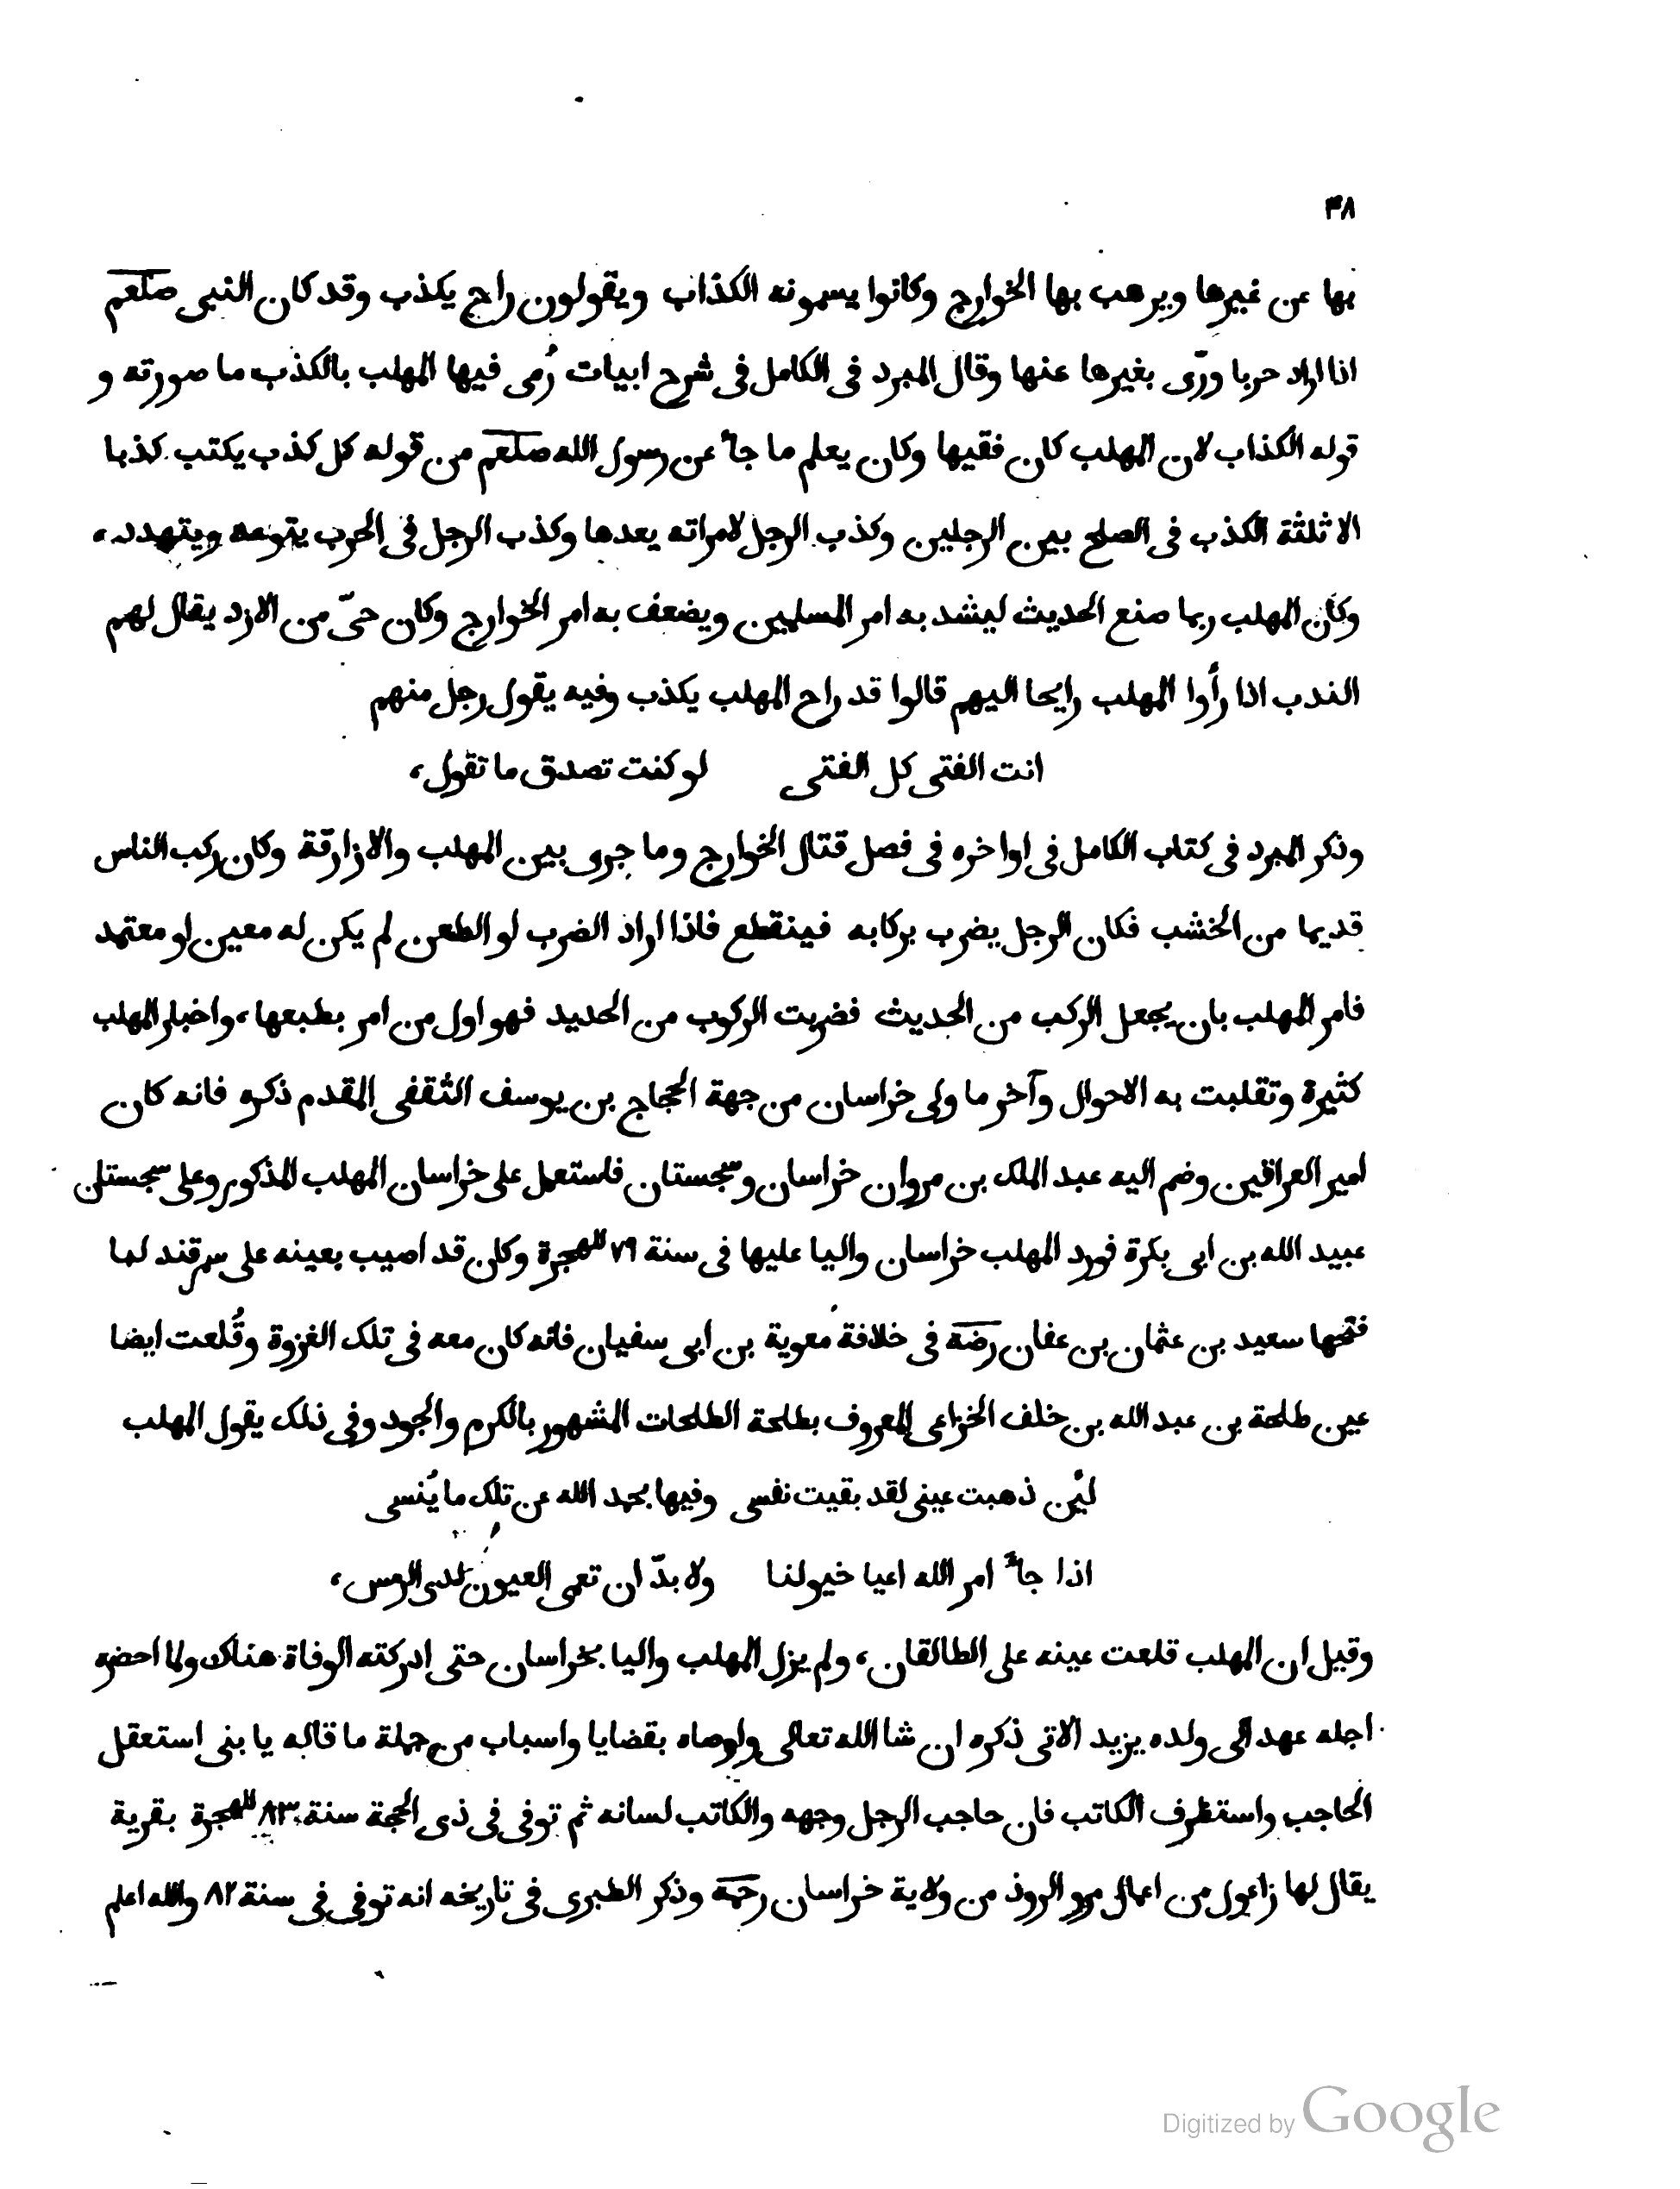 ۴۸
بها عن غيرها ويرهب بها الخوارج وكانوا يسمونه الكذاب ويقولون راح يكذب وقد كان النبى صلعم
اذا اراد حربا ورّى بغيرها عنها وقال المبرد فى الكامل فى شرح ابيات رُمى فيها المهلب بالكذب ما صورته و
قوله الكذاب لان المهلب كان فقيها وكان يعلم ما جآ عن رسول الله صلعم من قوله كل كذب يكتب كذبا
الا ثلثة الكذب فى الصلح بين الرجلين وكذب الرجل لامراته يعدها وكذب الرجل فى الحرب يتوعد ويتهدد،
وكان المهلب ربما صنع الحديث ليشد به امر المسلمين ويضعف به امر الخوارج وكان حىّ من الازد يقال لهم
الندب اذا رأوا المهلب رايحا اليهم قالوا قد راح المهلب يكذب وفيه يقول رجل منهم
انت الفتى كل الفتى لو كنت تصدق ما تقول،
وذكر المبرد فى كتاب الكامل فى اواخره فى فصل قتال الخوارج وما جرى بين المهلب والازارقة وكان ركب الناس
قديما من الخشب فكان الرجل يضرب بركابه فينقطع فاذا اراد الضرب لو الطعن لم يكن له معين او معتمد
فامر المهلب بان يجعل الركب من الحديث فضربت الركوب من الحديد فهو اول من امر بطبعها، واخبار المهلب
كثيرة وتقلبت به الاحوال وآخر ما ولى خراسان من جهة الحجاج بن يوسف الثقفى المقدم ذكره فانه كان
امير العراقين وضم اليه عبد الملك بن مروان خراسان وسجستان فاستعمل على خراسان المهلب المذكور وعلى سجستان
عبيد الله بن ابى بكرة فورد المهلب خراسان واليا عليها فى سنة ٧٩ للهجرة وكان قد اصيب بعينه على سمرقند لما
فتحها سعيد بن عثمان بن عفان رضه فى خلافة معوية بن ابى سفيان فانه كان معه فى تلك الغزوة وقُلعت ايضا
عين طلحة بن عبد الله بن خلف الخزاعى المعروف بطلحة الطلحات المشهور بالكرم والجود وفى ذلك يقول المهلب
لئن ذهبت عينى لقد بقيت نفسى وفيها بحمد الله عن تلك ما يُنسى
اذا جآء امر الله اعيا خيولنا ولا بدّ ان تعمى العيون لدى الرمس،
وقيل ان المهلب قلعت عينه على الطالقان، ولم يزل المهلب واليا بخراسان حتى ادركته الوفاة هناك ولما احضره
اجله عهد الى ولده يزيد الاتى ذكره ان شا الله تعالى واوصاه بقضايا واسباب من جملة ما قاله يا بنى استعقل
الحاجب واستظرف الكاتب فان حاجب الرجل وجهه والكاتب لسانه ثم توفى فى ذى الحجة سنة ٨٣ للهجرة بقرية
يقال لها زاغول من اعمال مرو الروذ من ولاية خراسان رحمه وذكر الطبرى فى تاريخه انه توفى فى سنة ٨٢ والله اعلم
Digitized by Google